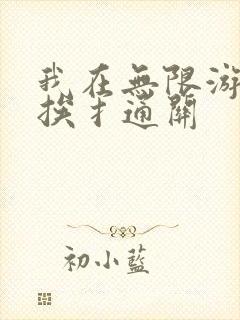 我在無限游
挨扌通關
初小藍